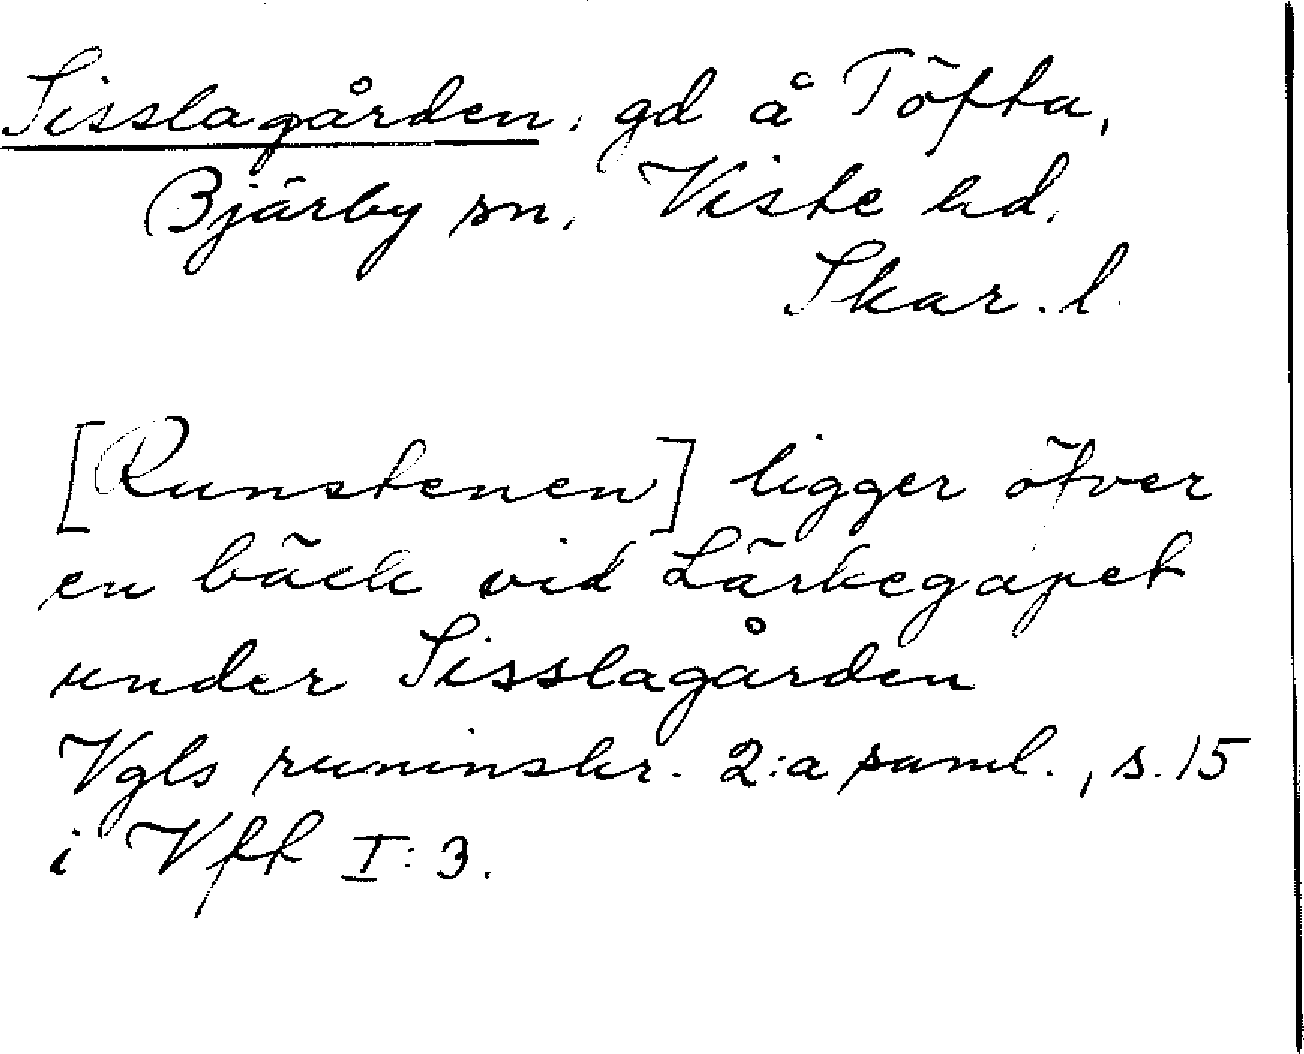 Sisslagården, gd å Töfta,
Bjärby sn, Viste hd.
Skar. l.
[Runstenen] ligger öfver
en bäck vid Lärkegapet
under Sisslagården
Vgls runinskr. 2:a saml., s. 15
i Vft I:3.